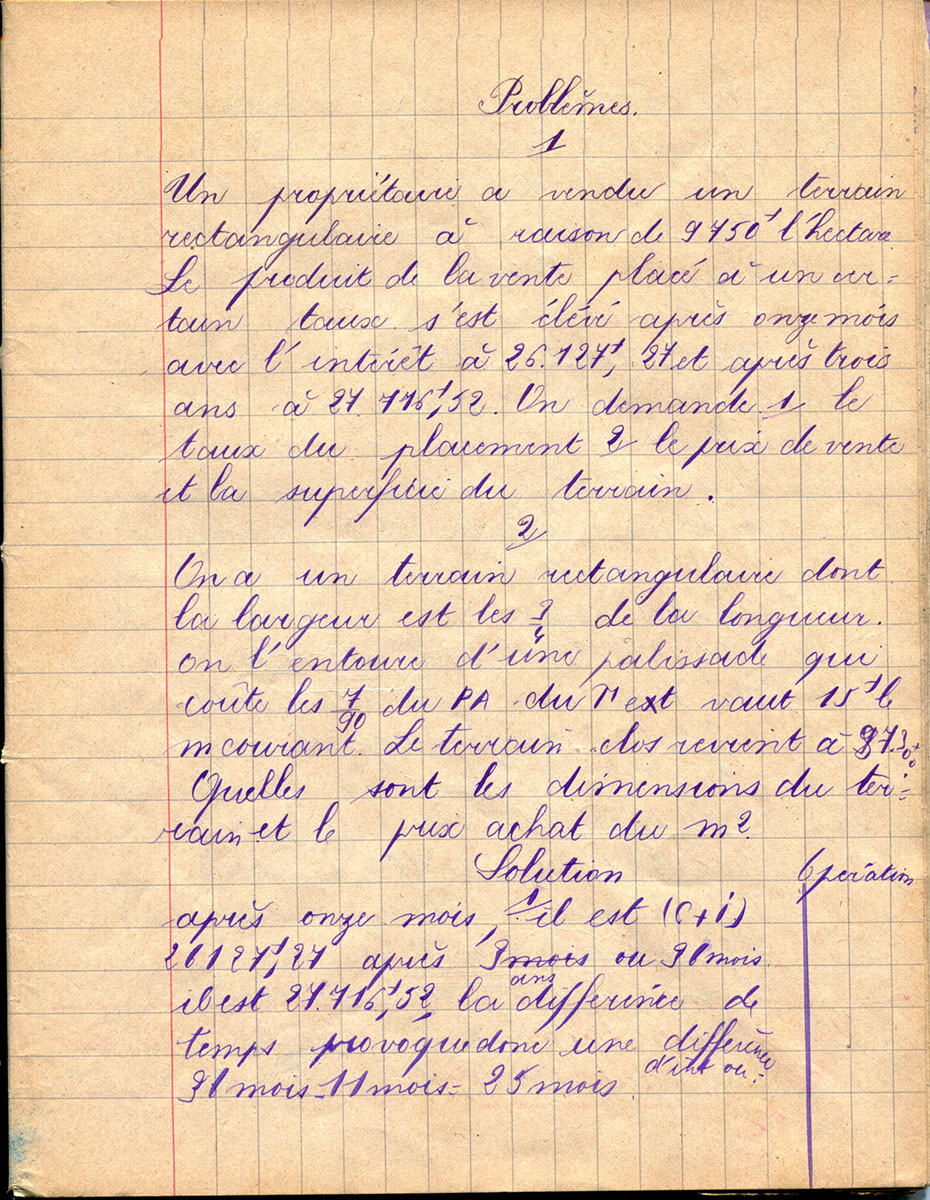 Problèmes.
1
Un propriétaire a vendu un terrain
rectangulaire à raison de 9750f l'hectare
Le produit de la vente placé à un cer=
tain taux s'est élévé après onze mois
avec l'intérêt à 26.127f,27 et après trois
ans à 27.716f,52. On demande 1 le
taux du placement 2 le prix de vente
et la superficie du terrain.
2
On a un terrain rectangulaire dont
la largeur est les 3/4 de la longueur.
on l'entoure d'une palissade qui
coûte les 7/90 du PA du et vaut 15f le
m courant. Le terrain clos revient à
Quelles sont les dimensions du ter=
rain et le prix achat du m2
Solution Opération
après onze mois, 1 il est (C+i)
26127f,27 après 3 mois ou 36 mois
ans
il est 27.716f,52 la différence de
temps provoque donc une différence
d'int ou:
36 mois - 11 mois = 25 mois